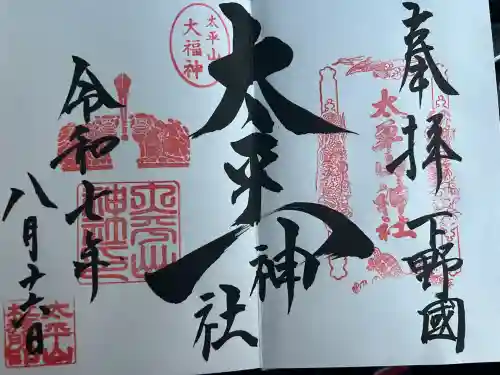 奉拝 下野國
太平山神社
太平山神社
太平山
大福神
令和七年
八月十六日
太平山神社